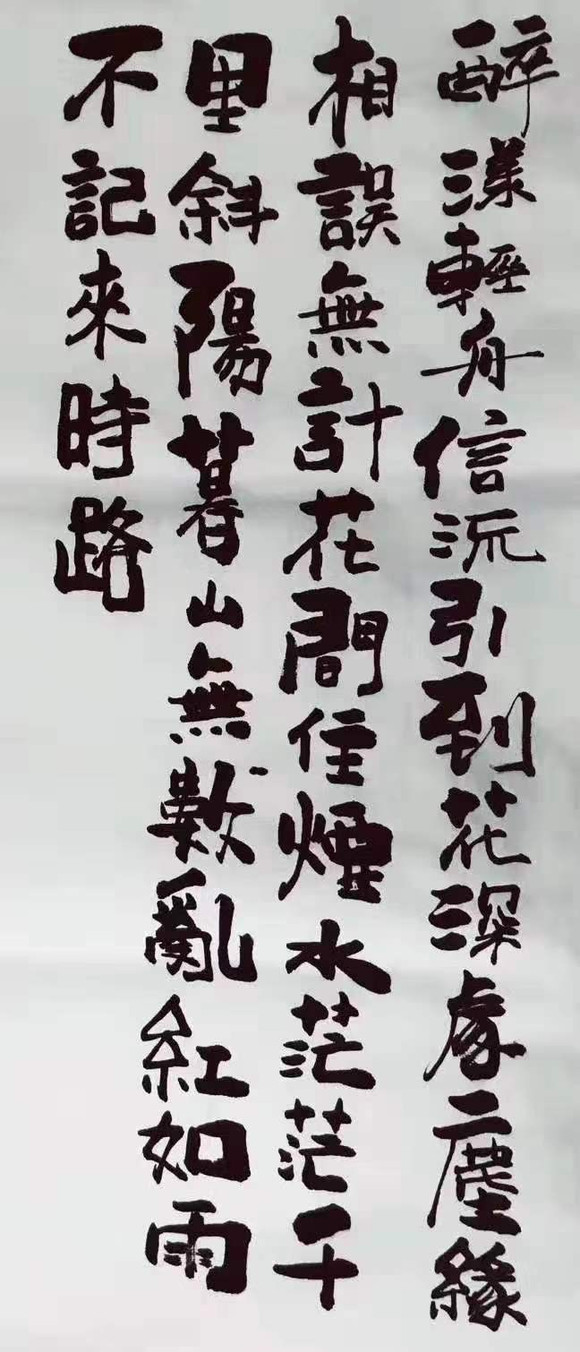 醉漾輕舟信流引到花深處塵緣
相誤無計花間住煙水茫茫千
里斜陽暮山無數亂紅如雨
不記來時路